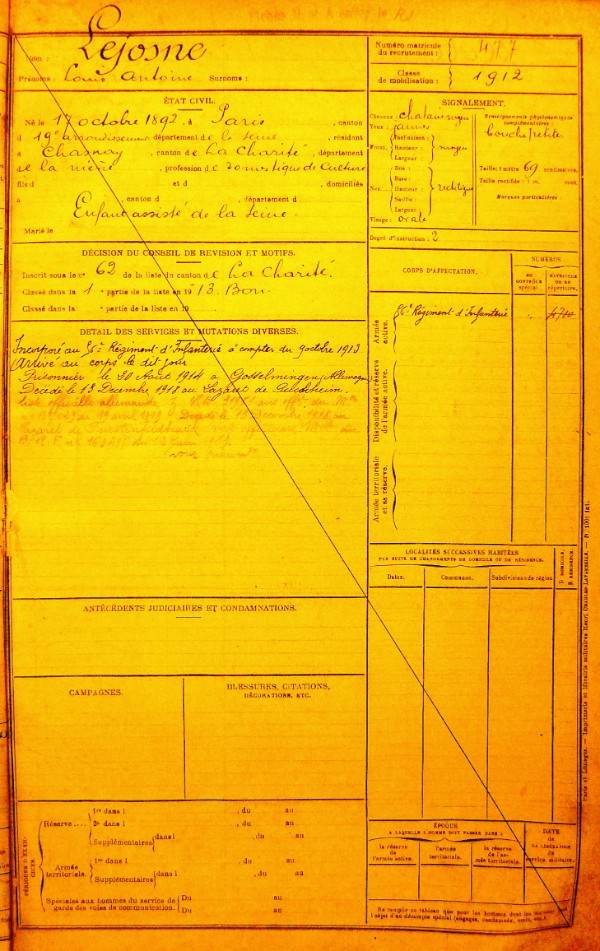 Nom : Lejosne
Prénoms : Louis Antoine Surnoms :
Numéro matricule du recrutement : 477
Classe de mobilisation : 1912
ÉTAT CIVIL.
Né le 17 octobre 1892, à Paris, canton
d 19e arrondissement département de la Seine, résidant
à Chasnay, canton de La Charité, département
de la Nièvre, profession de domestique de culture
fils d et d , domiciliés
à , canton d , département d
Enfant assisté de la Seine.
Marié le
SIGNALEMENT.
Cheveux : chatains
Yeux : jaunes
Front. Inclinaison :
Hauteur : moyen
Largeur :
Nez. Dos :
Base :
Hauteur : rectiligne
Saillie :
Largeur :
Visage : ovale
Renseignements physionomiques complémentaires :
bouche petite
Taille : 1 mètre 69 centimètres.
Taille rectifiée : 1 m. cent.
Marques particulières :
Degré d'instruction : 2
DÉCISION DU CONSEIL DE REVISION ET MOTIFS.
Inscrit sous le no 62 de la liste du canton de La Charité.
Classé dans la 1 e partie de la liste en 1913. Bon.
Classé dans la e partie de la liste en 19
DÉTAIL DES SERVICES ET MUTATIONS DIVERSES.
Incorporé au 56e Régiment d'Infanterie à compter du 9 octobre 1913
Arrivé au corps le dit jour
Prisonnier le 20 Août 1914 à Gosselmingen (Allemagne)
Décédé le 13 Décembre 1918 au Lazaret de
CORPS D'AFFECTATION.
NUMÉROS
AU CONTRÔLE SPÉCIAL.
MATRICULE OU AU RÉPERTOIRE.
Armée active.
56e Régiment d'Infanterie
Disponibilité et réserve de l'armée active.
Armée territoriale et sa réserve.
LOCALITÉS SUCCESSIVES HABITÉES
PAR SUITE DE CHANGEMENTS DE DOMICILE OU DE RÉSIDENCE.
Dates. Communes. Subdivisions de région.
D. DOMICILE. R. RÉSIDENCE.
ANTÉCÉDENTS JUDICIAIRES ET CONDAMNATIONS.
CAMPAGNES.
BLESSURES, CITATIONS, DÉCORATIONS, ETC.
PÉRIODES D'EXERCICES.
Réserve .... 1re dans l , du au
2e dans l , du au
Supplémentaires dans l , du au
Armée territoriale. 1re dans l , du au
Supplémentaires dans l , du au
Spéciales aux hommes du service de garde des voies de communication. Du au
Du au
ÉPOQUE
À LAQUELLE L'HOMME DOIT PASSER DANS :
la réserve de l'armée active.
l'armée territoriale.
la réserve de l'armée territoriale.
DATE DE LA LIBÉRATION DU SERVICE MILITAIRE.
Paris et Limoges. — Imprimerie et librairie militaires Henri CHARLES-LAVAUZELLE.